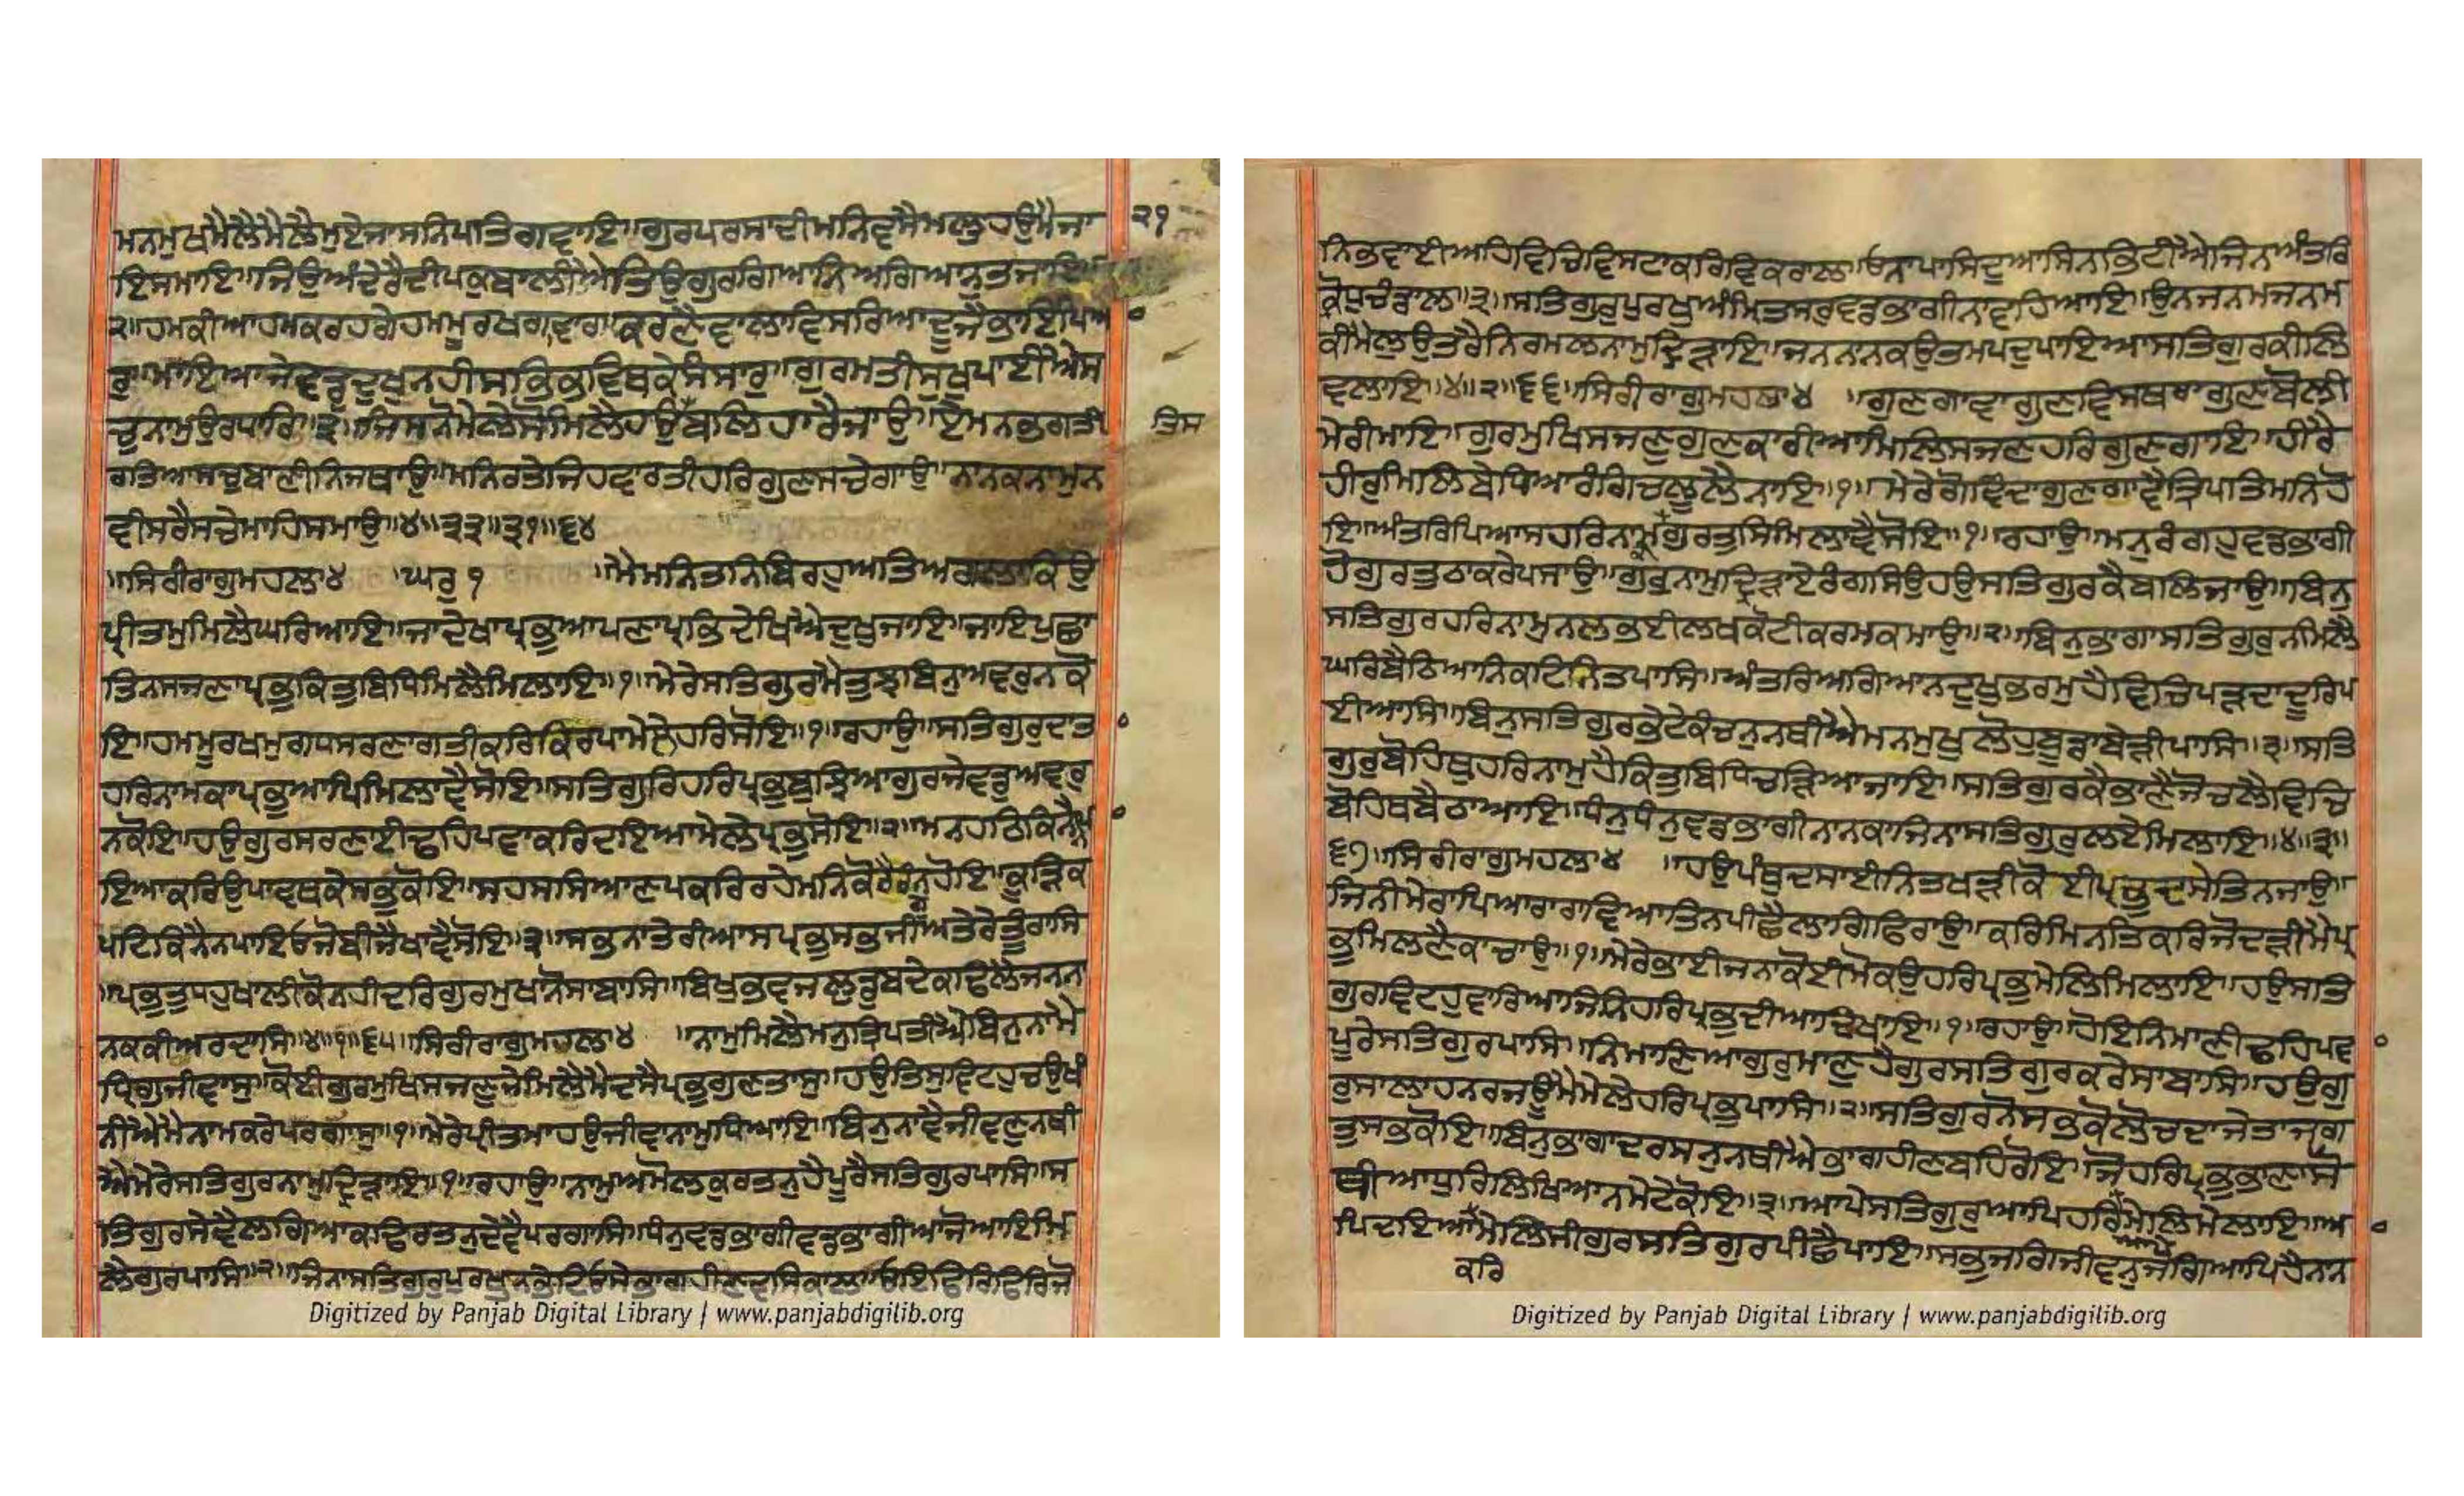 ਮਨਮੁਖਮੈਲੇਮੈਲੇਮੁਏਜਾਸਨਿਪਤਿਗਵਾਇ॥ਗੁਰਪਰਸਾਦੀਮਨਿਵਸੈਮਲੁਹਉਮੈਜਾ
੨੧
ਇਸਮਾਇ॥ਜਿਉਅੰਧੇਰੈਦੀਪਕੁਬਾਲੀਐਤਿਉਗੁਰਗਿਆਨਿਅਗਿਆਨੁਤਜਾਇ॥
੨॥ਹਮਕੀਆਹਮਕਰਹਗੇਹਮਮੂਰਖਗਾਵਾਰ॥ਕਰਣੈਵਾਲਾਵਿਸਰਿਆਦੂਜੈਭਾਇਪਿਆ
ਰੁ॥ਮਾਇਆਜੇਵਡੁਦੁਖੁਨਹੀਸਭਿਭਵਿਥਕੇਸੰਸਾਰੁ॥ਗੁਰਮਤੀਸੁਖੁਪਾਈਐਸ
ਚੁਨਾਮੁਉਰਧਾਰਿ॥੩॥ਜਿਸਨੋਮੇਲੇਸੋਮਿਲੈਹਉਬਲਿਹਾਰੈਜਾਉ॥ਏਮਨਭਗਤੀ
ਤਿਸ
ਰਤਿਆਸਚੁਬਾਣੀਨਿਜਥਾਉ॥ਮਨਿਰਤੇਜਿਹਵਾਰਤੀਹਰਿਗੁਣਸਚੇਗਾਉ॥ਨਾਨਕਨਾਮੁਨ
ਵੀਸਰੈਸਚੇਮਾਹਿਸਮਾਉ॥੪॥੩੩॥੩੧॥੬੪
॥ਸਿਰੀਰਾਗੁਮਹਲਾ੪ ਘਰੁ੧ ॥ਮੈਮਨਿਤਨਿਬਿਰਹੁਅਤਿਅਗਲਾਕਿਉ
ਪ੍ਰੀਤਮੁਮਿਲੈਘਰਿਆਇ॥ਜਾਦੇਖਾਪ੍ਰਭੁਆਪਣਾਪ੍ਰਭਿਦੇਖਿਐਦੁਖੁਜਾਇ॥ਜਾਇਪੁਛਾ
ਤਿਨਸਜਣਾਪ੍ਰਭੁਕਿਤੁਬਿਧਿਮਿਲੈਮਿਲਾਇ॥੧॥ਮੇਰੇਸਤਿਗੁਰਮੈਤੁਝਬਿਨੁਅਵਰੁਨਕੋ
ਇ॥ਹਮਮੂਰਖਮੁਗਧਸਰਣਾਗਤੀਕਰਿਕਿਰਪਾਮੇਲੇਹਰਿਸੋਇ॥੧॥ਰਹਾਉ॥ਸਤਿਗੁਰੁਦਾਤਾ
ਹਰਿਨਾਮਕਾਪ੍ਰਭੁਆਪਿਮਿਲਾਵੈਸੋਇ॥ਸਤਿਗੁਰਿਹਰਿਪ੍ਰਭੁਬੁਝਿਆਗੁਰਜੇਵਡੁਅਵਰੁ
ਨਕੋਇ॥ਹਉਗੁਰਸਰਣਾਈਢਹਿਪਵਾਕਰਿਦਇਆਮੇਲੇਪ੍ਰਭੁਸੋਇ॥੨॥ਮਨਹਠਿਕਿਨੈਨਪਾ
ਇਆਕਰਿਉਪਾਵਥਕੇਸਭੁਕੋਇ॥ਸਹਸਸਿਆਣਪਕਰਿਰਹੇਮਨਿਕੋਰੈਰੰਗੁਨਹੋਇ॥ਕੂੜਿਕ
ਪਟਿਕਿਨੈਨਪਾਇਓਜੋਬੀਜੈਖਾਵੈਸੋਇ॥੩॥ਸਭਨਾਤੇਰੀਆਸਪ੍ਰਭੁਸਭਜੀਅਤੇਰੇਤੂੰਰਾਸਿ
॥ਪ੍ਰਭਤੁਧਹੁਖਾਲੀਕੋਨਹੀਦਰਿਗੁਰਮੁਖਾਨੋਸਾਬਾਸਿ॥ਬਿਖੁਭਵਜਲਡੁਬਦੇਕਾਢਿਲੈਜਨਨਾ
ਨਕਕੀਅਰਦਾਸਿ॥੪॥੧॥੬੫॥ਸਿਰੀਰਾਗੁਮਹਲਾ੪ ॥ਨਾਮੁਮਿਲੈਮਨੁਤ੍ਰਿਪਤੀਐਬਿਨੁਨਾਮੈ
ਧ੍ਰਿਗੁਜੀਵਾਸੁ॥ਕੋਈਗੁਰਮੁਖਿਸਜਣੁਜੇਮਿਲੈਮੈਦਸੇਪ੍ਰਭੁਗੁਣਤਾਸੁ॥ਹਉਤਿਸੁਵਿਟਹੁਚਉਖੰ
ਨੀਐਮੈਨਾਮਕਰੇਪਰਗਾਸੁ॥੧॥ਮੇਰੇਪ੍ਰੀਤਮਾਹਉਜੀਵਾਨਾਮੁਧਿਆਇ॥ਬਿਨੁਨਾਵੈਜੀਵਣੁਨਥੀ
ਐਮੇਰੇਸਤਿਗੁਰਨਾਮੁਦ੍ਰਿੜਾਇ॥੧॥ਰਹਾਉ॥ਨਾਮੁਅਮੋਲਕੁਰਤਨੁਹੈਪੂਰੇਸਤਿਗੁਰਪਾਸਿ॥ਸ
ਤਿਗੁਰਸੇਵੈਲਗਿਆਕਢਿਰਤਨੁਦੇਵੈਪਰਗਾਸਿ॥ਧਨੁਵਡਭਾਗੀਵਡਭਾਗੀਆਜੋਆਇਮਿ
ਲੇਗੁਰਪਾਸਿ॥੨॥ਜਿਨਾਸਤਿਗੁਰੁਪੁਰਖੁਨਭੇਟਿਓਸੇਭਾਗਹੀਣਵਸਿਕਾਲ॥ਓਇਫਿਰਿਫਿਰਿਜੋ
Digitized by Panjab Digital Library | www.panjabdigilib.org
ਨਿਭਵਾਈਅਹਿਵਿਚਿਵਿਸਟਾਕਰਿਵਿਕਰਾਲ॥ਓਨਾਪਾਸਿਦੁਆਸਿਨਭਿਟੀਐਜਿਨਾਅੰਤਰਿ
ਕ੍ਰੋਧੁਚੰਡਾਲ॥੩॥ਸਤਿਗੁਰੁਪੁਰਖੁਅੰਮ੍ਰਿਤਸਰੁਵਡਭਾਗੀਨਾਵਹਿਆਇ॥ਉਨਜਨਮਜਨਮ
ਕੀਮੈਲੁਉਤਰੈਨਿਰਮਲਨਾਮੁਦ੍ਰਿੜਾਇ॥ਜਨਨਾਨਕਉਤਮਪਦੁਪਾਇਆਸਤਿਗੁਰਕੀਲਿ
ਵਲਾਇ॥੪॥੨॥੬੬॥ਸਿਰੀਰਾਗੁਮਹਲਾ੪ ॥ਗੁਣਗਾਵਾਗੁਣਵਿਸਥਰਾਗੁਣਬੋਲੀ
ਮੇਰੀਮਾਇ॥ਗੁਰਮੁਖਿਸਜਣੁਗੁਣਕਾਰੀਆਮਿਲਿਸਜਣਹਰਿਗੁਣਗਾਇ॥ਹੀਰੈ
ਹੀਰੁਮਿਲਿਬੇਧਿਆਰੰਗਿਚਲੂਲੈਨਾਇ॥੧॥ਮੇਰੇਗੋਵਿੰਦਾਗੁਣਗਾਵਾਤ੍ਰਿਪਤਿਮਨਿਹੋ
ਇ॥ਅੰਤਰਿਪਿਆਸਹਰਿਨਾਮਗੁਰਤੁਸਿਮਿਲਾਵੈਸੋਇ॥੧॥ਰਹਾਉ॥ਮਨੁਰੰਗਹੁਵਡਭਾਗੀ
ਹੋਗੁਰਤੁਠਾਕਰੇਪਸਾਉ॥ਗੁਰੁਨਾਮੁਦ੍ਰਿੜਾਏਰੰਗਸਿਉਹਉਸਤਿਗੁਰਕੈਬਲਿਜਾਉ॥ਬਿਨੁ
ਸਤਿਗੁਰਹਰਿਨਾਮੁਨਲਭਈਲਖਕੋਟੀਕਰਮਕਮਾਉ॥੨॥ਬਿਨੁਭਾਗਾਸਤਿਗੁਰੁਨਾਮਿਲੈ
ਘਰਿਬੈਠਿਆਨਿਕਟਿਨਿਤਪਾਸਿ॥ਅੰਤਰਿਅਗਿਆਨਦੁਖੁਭਰਮੁਹੈਵਿਚਿਪੜਦਾਦੂਰਿਪ
ਈਆਸਿ॥ਬਿਨੁਸਤਿਗੁਰਭੇਟੇਕੰਚਨੁਨਥੀਐਮਨਮੁਖੁਲੋਹੁਬੂਡਾਬੇੜੀਪਾਸਿ॥੩॥ਸਤਿ
ਗੁਰੁਬੋਹਿਥੁਹਰਿਨਾਮੁਹੈਕਿਤੁਬਿਧਿਚੜਿਆਜਾਇ॥ਸਤਿਗੁਰਕੈਭਾਣੈਜੋਚਲੈਵਿਚਿ
ਬੋਹਿਥਬੈਠਾਆਇ॥ਧੰਨੁਧੰਨੁਵਡਭਾਗੀਨਾਨਕਾਜਿਨਾਸਤਿਗੁਰੁਲਏਮਿਲਾਇ॥੪॥੩॥
੬੭॥ਸਿਰੀਰਾਗੁਮਹਲਾ੪ ॥ਹਉਪੰਥੁਦਸਾਈਨਿਤਖੜੀਕੋਈਪ੍ਰਭੁਦਸੇਤਿਨਜਾਉ॥
ਜਿਨੀਮੇਰਾਪਿਆਰਾਰਾਵਿਆਤਿਨਪੀਛੈਲਾਗਿਫਿਰਾਉ॥ਕਰਿਮਿਨਤਿਕਰਿਜੋਦੜੀਮੈਪ੍ਰ
ਭੁਮਿਲਣੈਕਾਚਾਉ॥੧॥ਮੇਰੇਭਾਈਜਨਾਕੋਈਮੋਕਉਹਰਿਪ੍ਰਭੁਮੇਲਿਮਿਲਾਇ॥ਹਉਸਤਿ
ਗੁਰਵਿਟਹੁਵਾਰਿਆਜਿਨਿਹਰਿਪ੍ਰਭੁਦੀਆਦਿਖਾਇ॥੧॥ਰਹਾਉ॥ਹੋਇਨਿਮਾਣੀਢਹਿਪਵਾ
ਪੂਰੇਸਤਿਗੁਰਪਾਸਿ॥ਨਿਮਾਣਿਆਗੁਰੁਮਾਣੁਹੈਗੁਰਸਤਿਗੁਰਕਰੇਸਾਬਾਸਿ॥ਹਉਗੁ
ਰੁਸਾਲਾਹਨਰਜਊਮੈਮੇਲੇਹਰਿਪ੍ਰਭੁਪਾਸਿ॥੨॥ਸਤਿਗੁਰਨੋਸਭਕੋਲੋਚਦਾਜੇਤਾਜਗ
ਤੁਸਭੁਕੋਇ॥ਬਿਨੁਭਾਗਾਦਰਸਨੁਨਥੀਐਭਾਗਹੀਣਬਹਿਰੋਇ॥ਜੋਹਰਿਪ੍ਰਭਭਾਣਾਸੋ
ਥੀਆਧੁਰਿਲਿਖਿਆਨਮੇਟੇਕੋਇ॥੩॥ਆਪੇਸਤਿਗੁਰੁਆਪਿਹਰਿਮੇਲਿਮੇਲਾਇ॥ਆ
ਪਿਦਇਆਮੇਲਿਸੀਗੁਰਸਤਿਗੁਰਪੀਛੈਪਾਇ॥ਸਭੁਜਗਿਜੀਵਨੁਜਗਿਆਪਿਹੈਨਾਨ
ਕਰਿ
Digitized by Panjab Digital Library | www.panjabdigilib.org